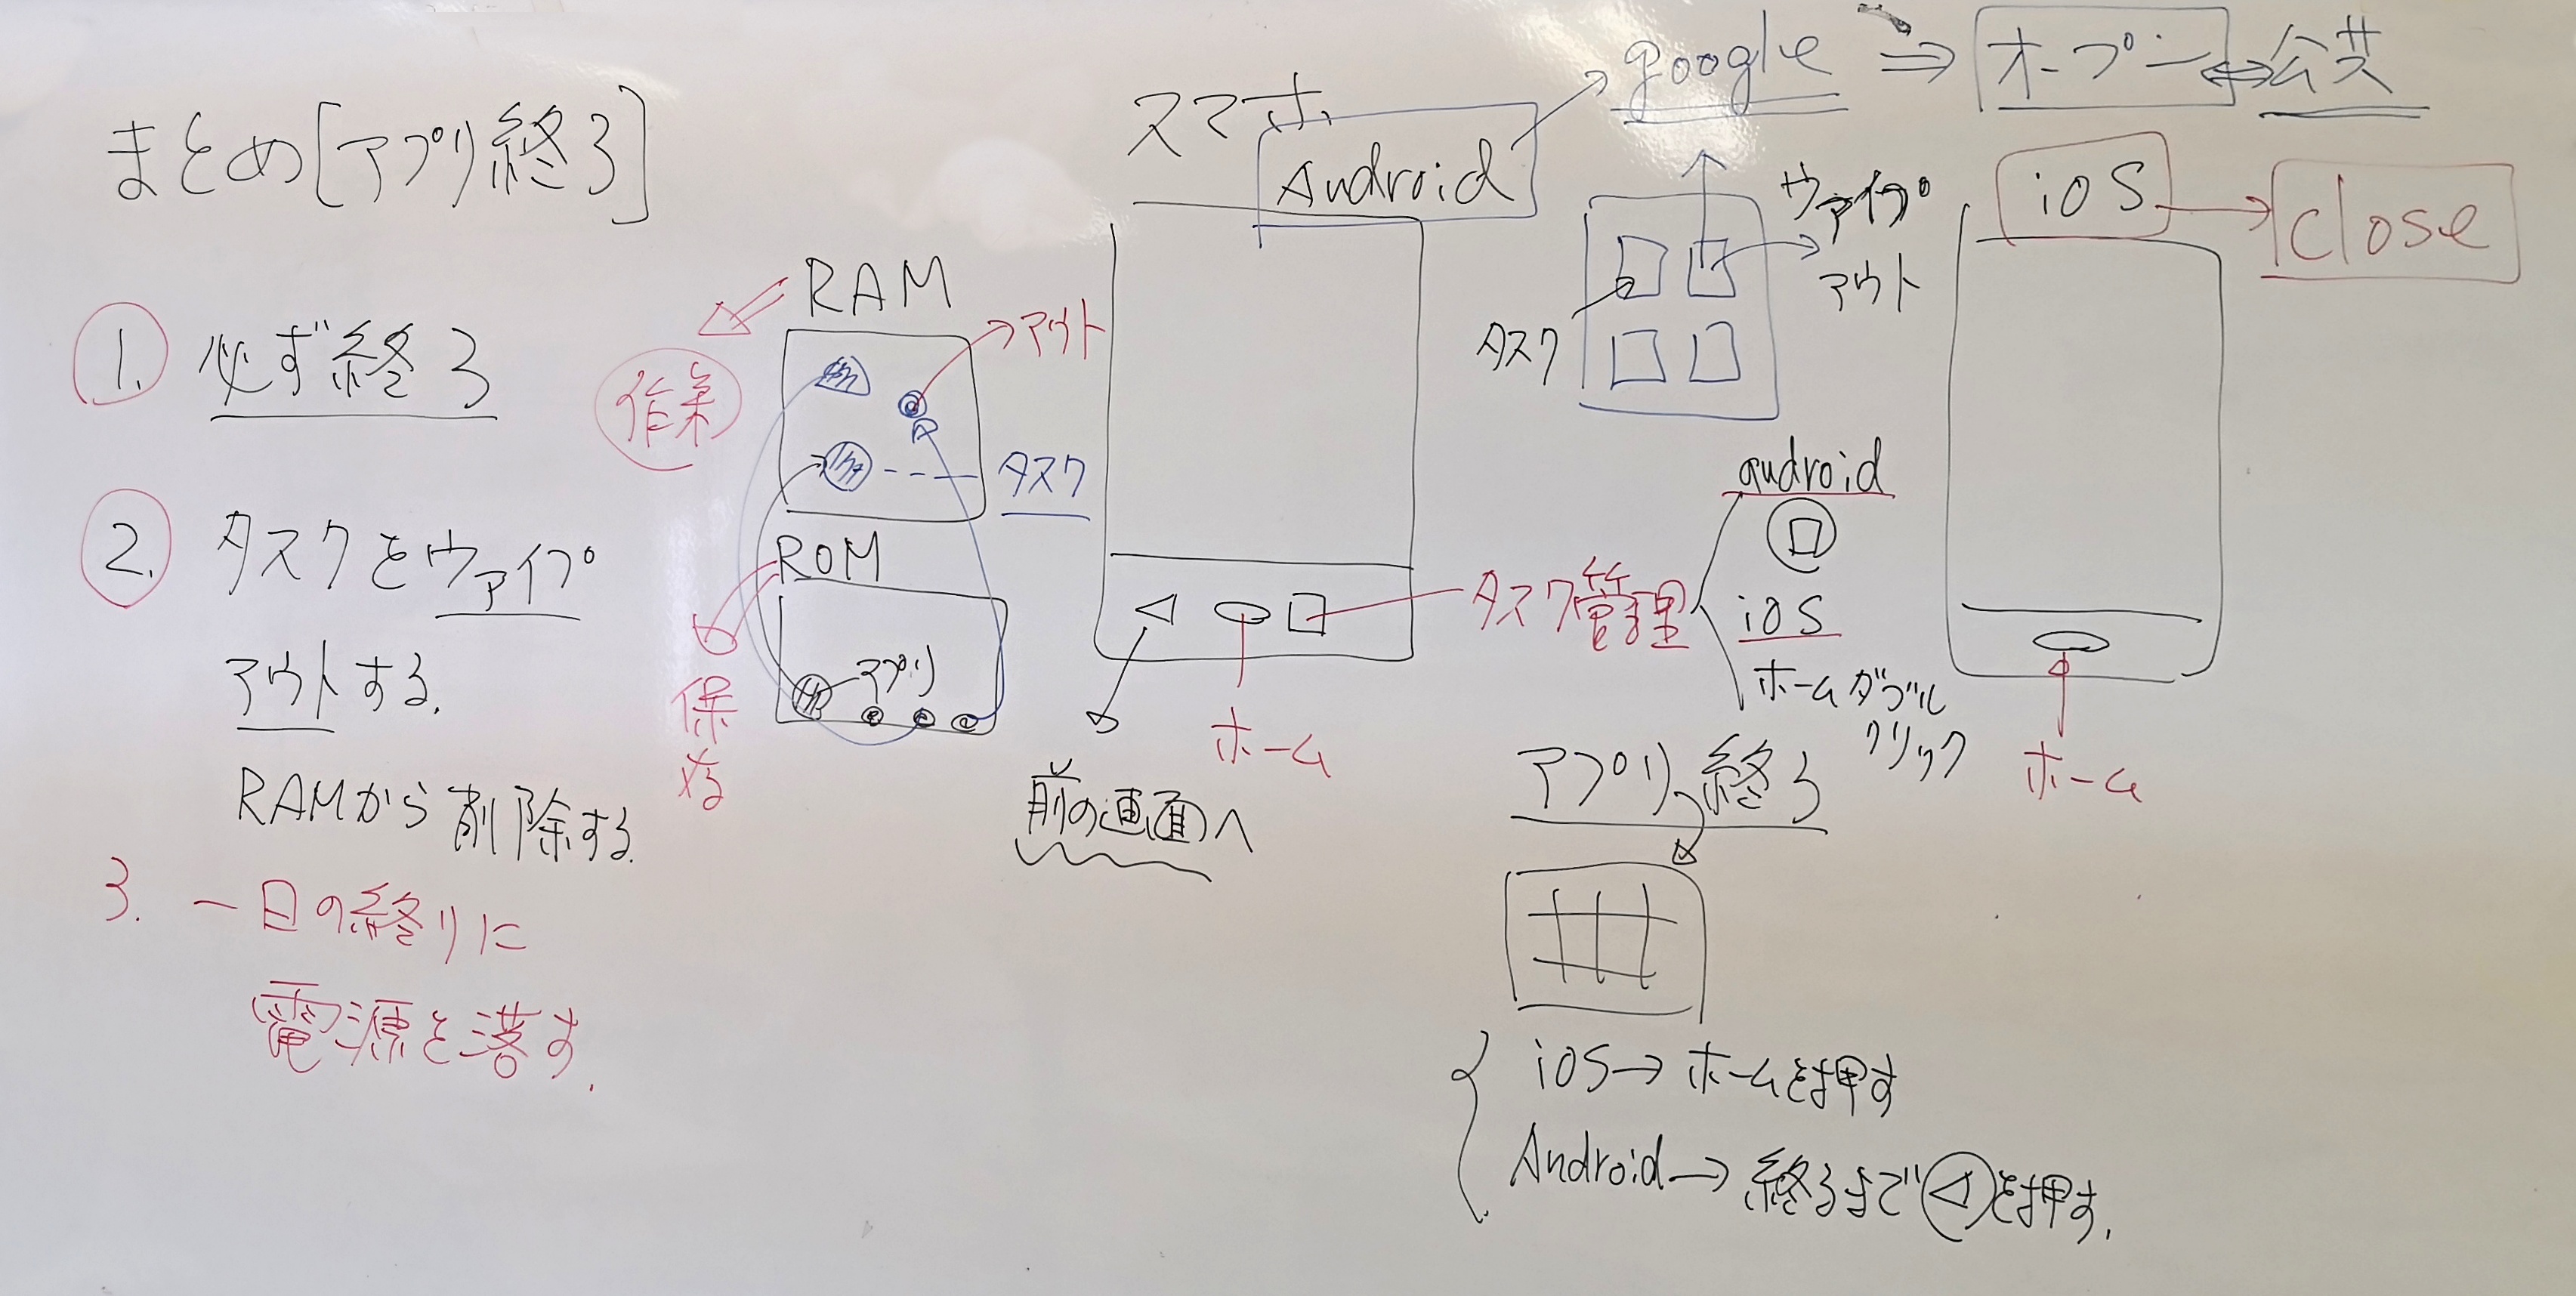 まとめ[アプリ終了]
1. 必ず終了
2. タスクをヴァイプ
アウトする.
RAMから削除する.
3. 一日の終りに
電源を落す.
RAM
作業
アウト
タスク
ROM
アプリ
保
スマホ
Android
google ⇒ オープン ⇔ 公共
ヴァイプ
アウト
タスク
iOS → close
◁ □
前の画面へ
ホーム
タスク管理
android
□
iOS
ホームダブル
クリック
ホーム
アプリ終了
iOS→ホームを押す
Android→終了まで◁を押す.